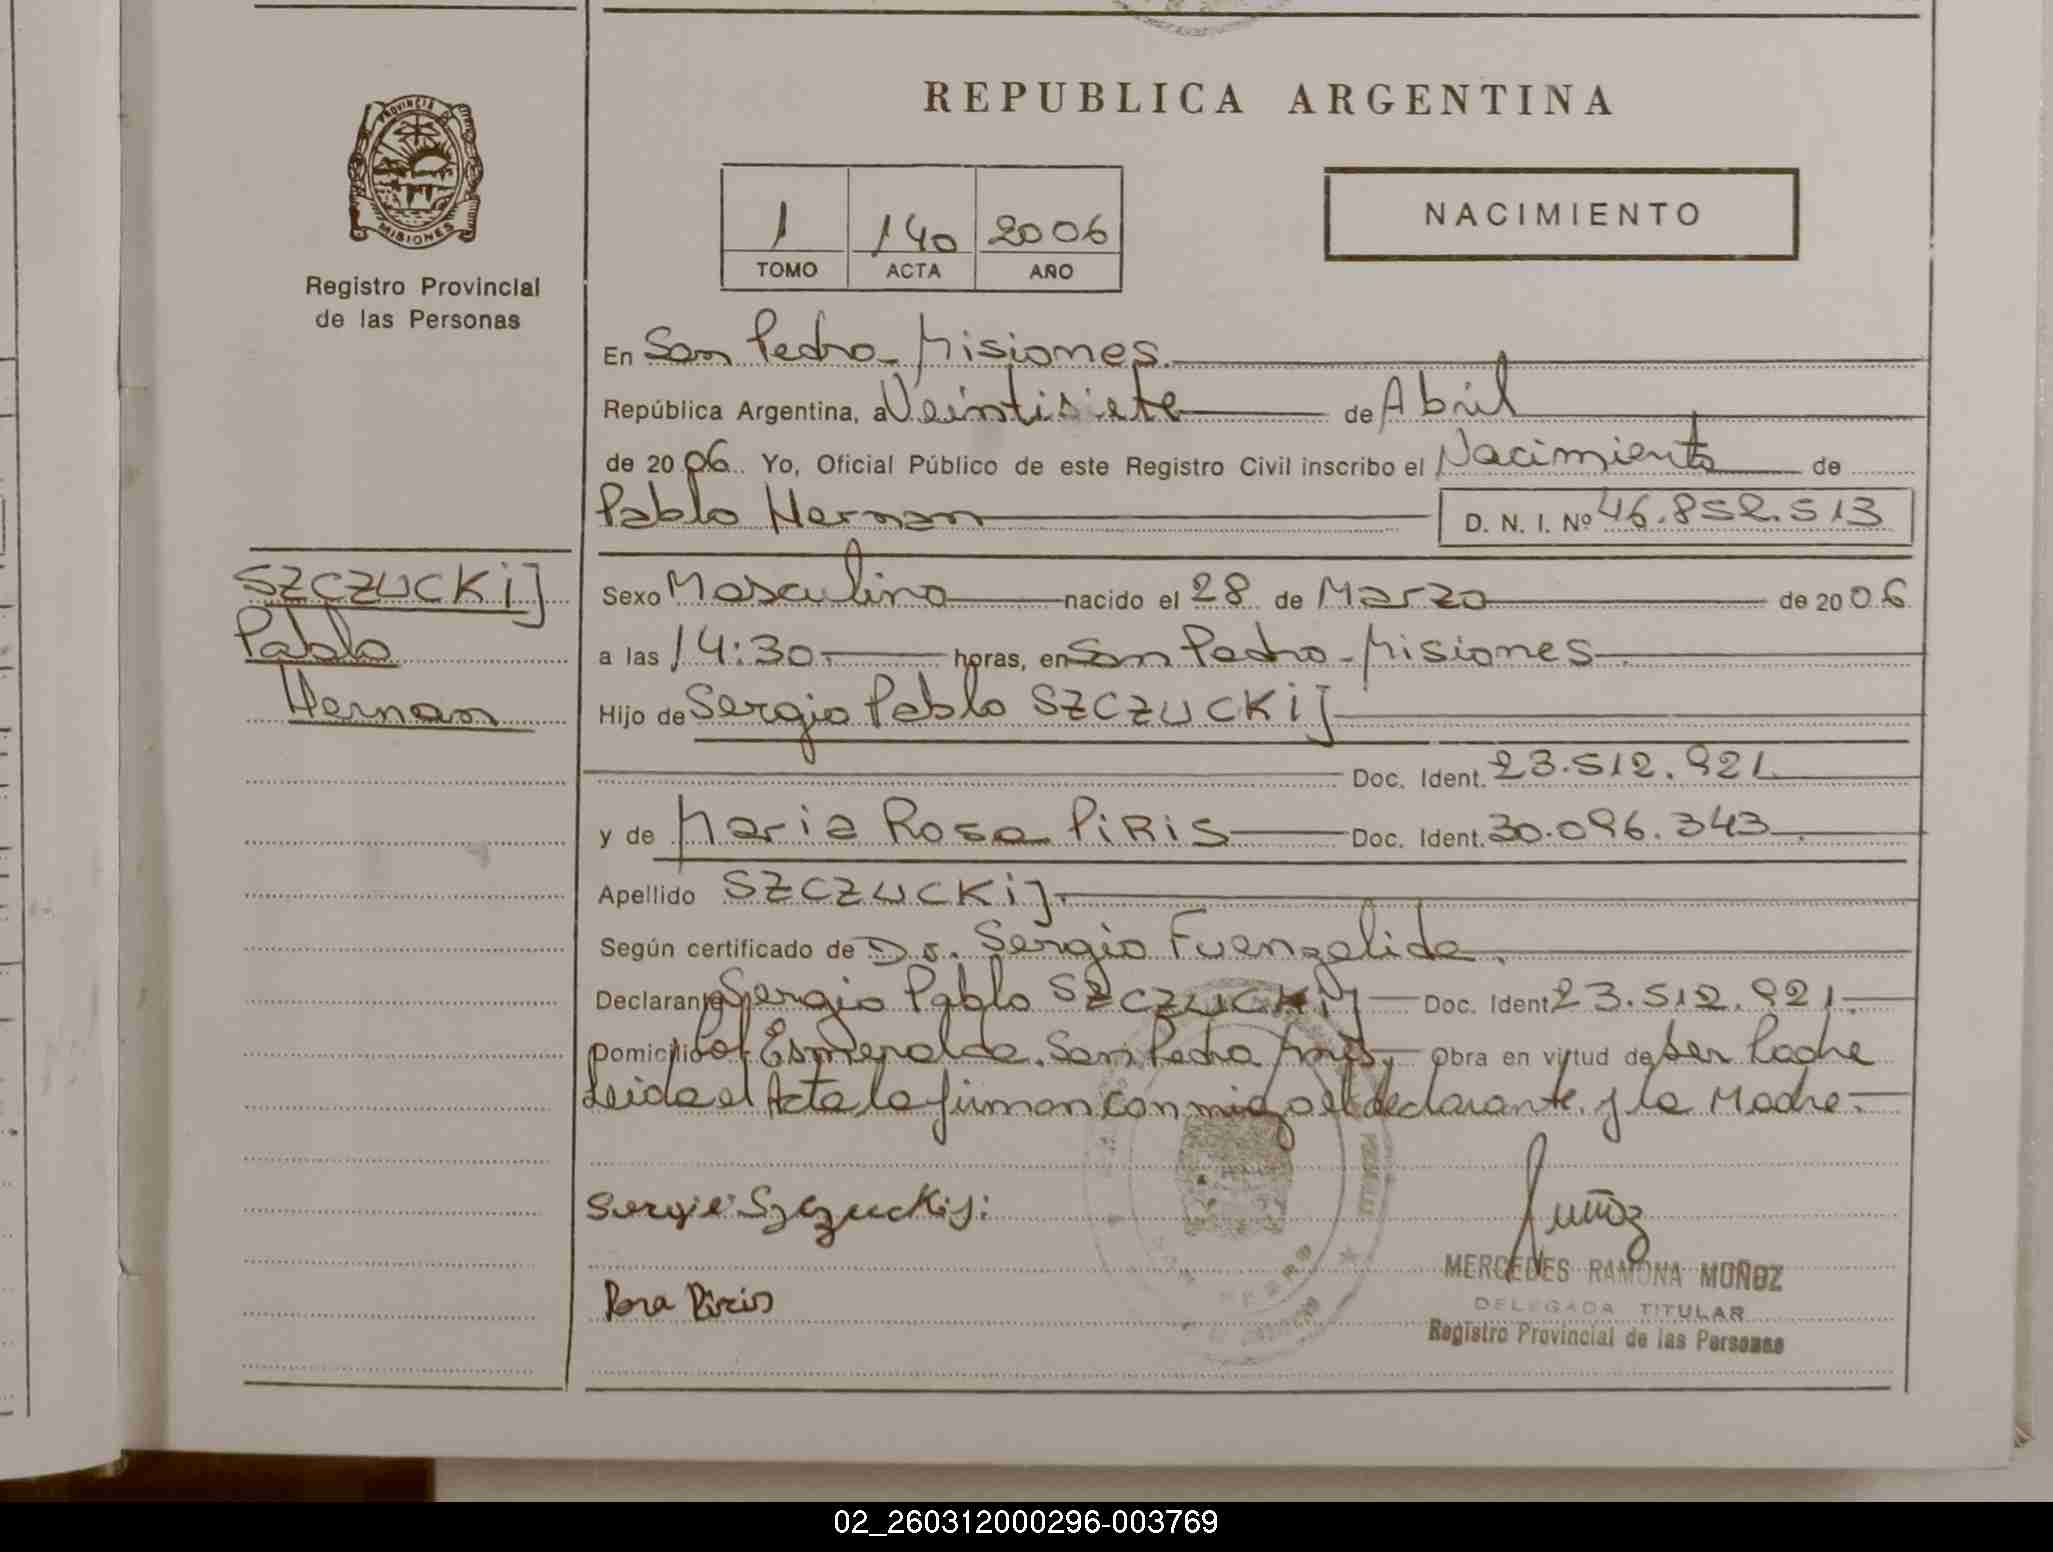 REPUBLICA ARGENTINA
PROVINCIA
MISIONES
Registro Provincial
de las Personas
1 140 2006
TOMO ACTA AÑO
NACIMIENTO
En San Pedro - Misiones.
República Argentina, a Veintisiete de Abril
de 2006. Yo, Oficial Público de este Registro Civil inscribo el Nacimiento de
Pablo Hernan D. N. I. Nº 46.852.513
SZCZUCKij
Pablo
Hernan
Sexo Masculino nacido el 28 de Marzo de 2006
a las 14:30 horas, en San Pedro - Misiones
Hijo de Sergio Pablo SZCZUCKij
Doc. Ident. 23.512.921
y de Maria Rosa PiRiS Doc. Ident. 30.096.343
Apellido SZCZUCKij.
Según certificado de Dr. Sergio Fuenzalida.
Declarante Sergio Pablo SZCZUCKij Doc. Ident 23.512.921.
Domicilio Esmeralda. San Pedro Mnes, Obra en virtud de ser Padre
Leida el Acta la firman conmigo el declarante y la Madre.
Sergio Szczuckij
Muñoz
MERCEDES RAMONA MUÑOZ
Rosa Piris
DELEGADA TITULAR
Registro Provincial de las Personas
02_260312000296-003769